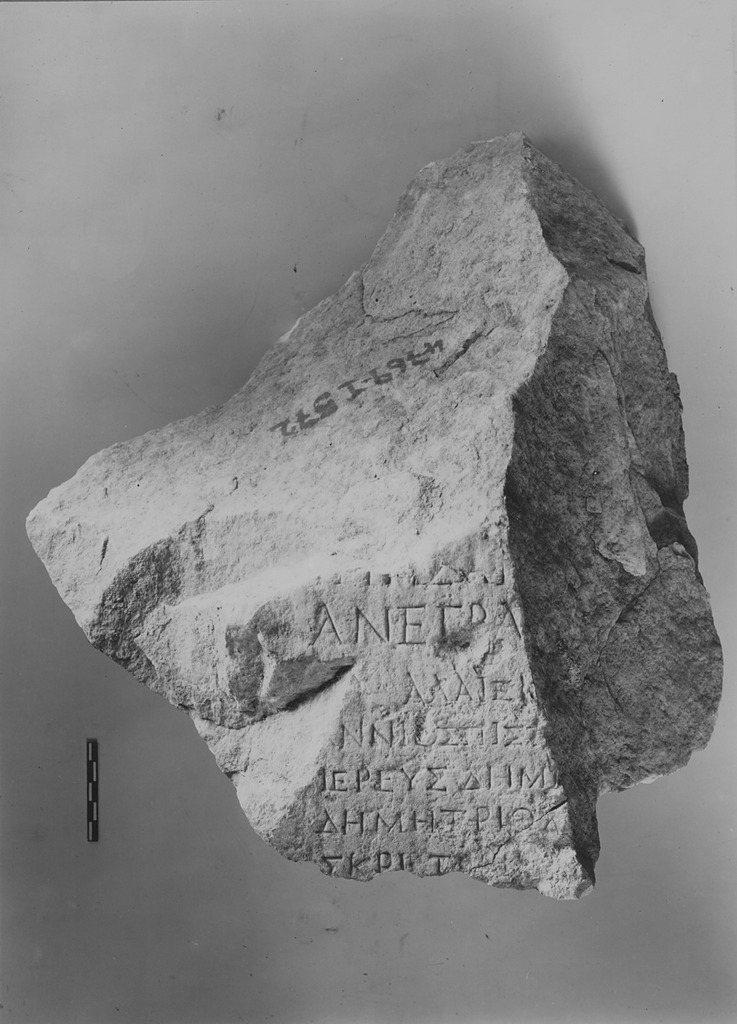 4769-I 572
ΑΝΕΓΡΑ
ΑΛΑΙΕΙ
ΝΝΙΟΣΠΙΣ
ΙΕΡΕΥΣΔΗΜ
ΔΗΜΗΤΡΙΟ
ΣΚΡΙ